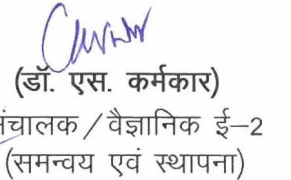 (डॉ. एस. कर्मकार)
वैज्ञानिक ई–2
(समन्वय एवं स्थापना)